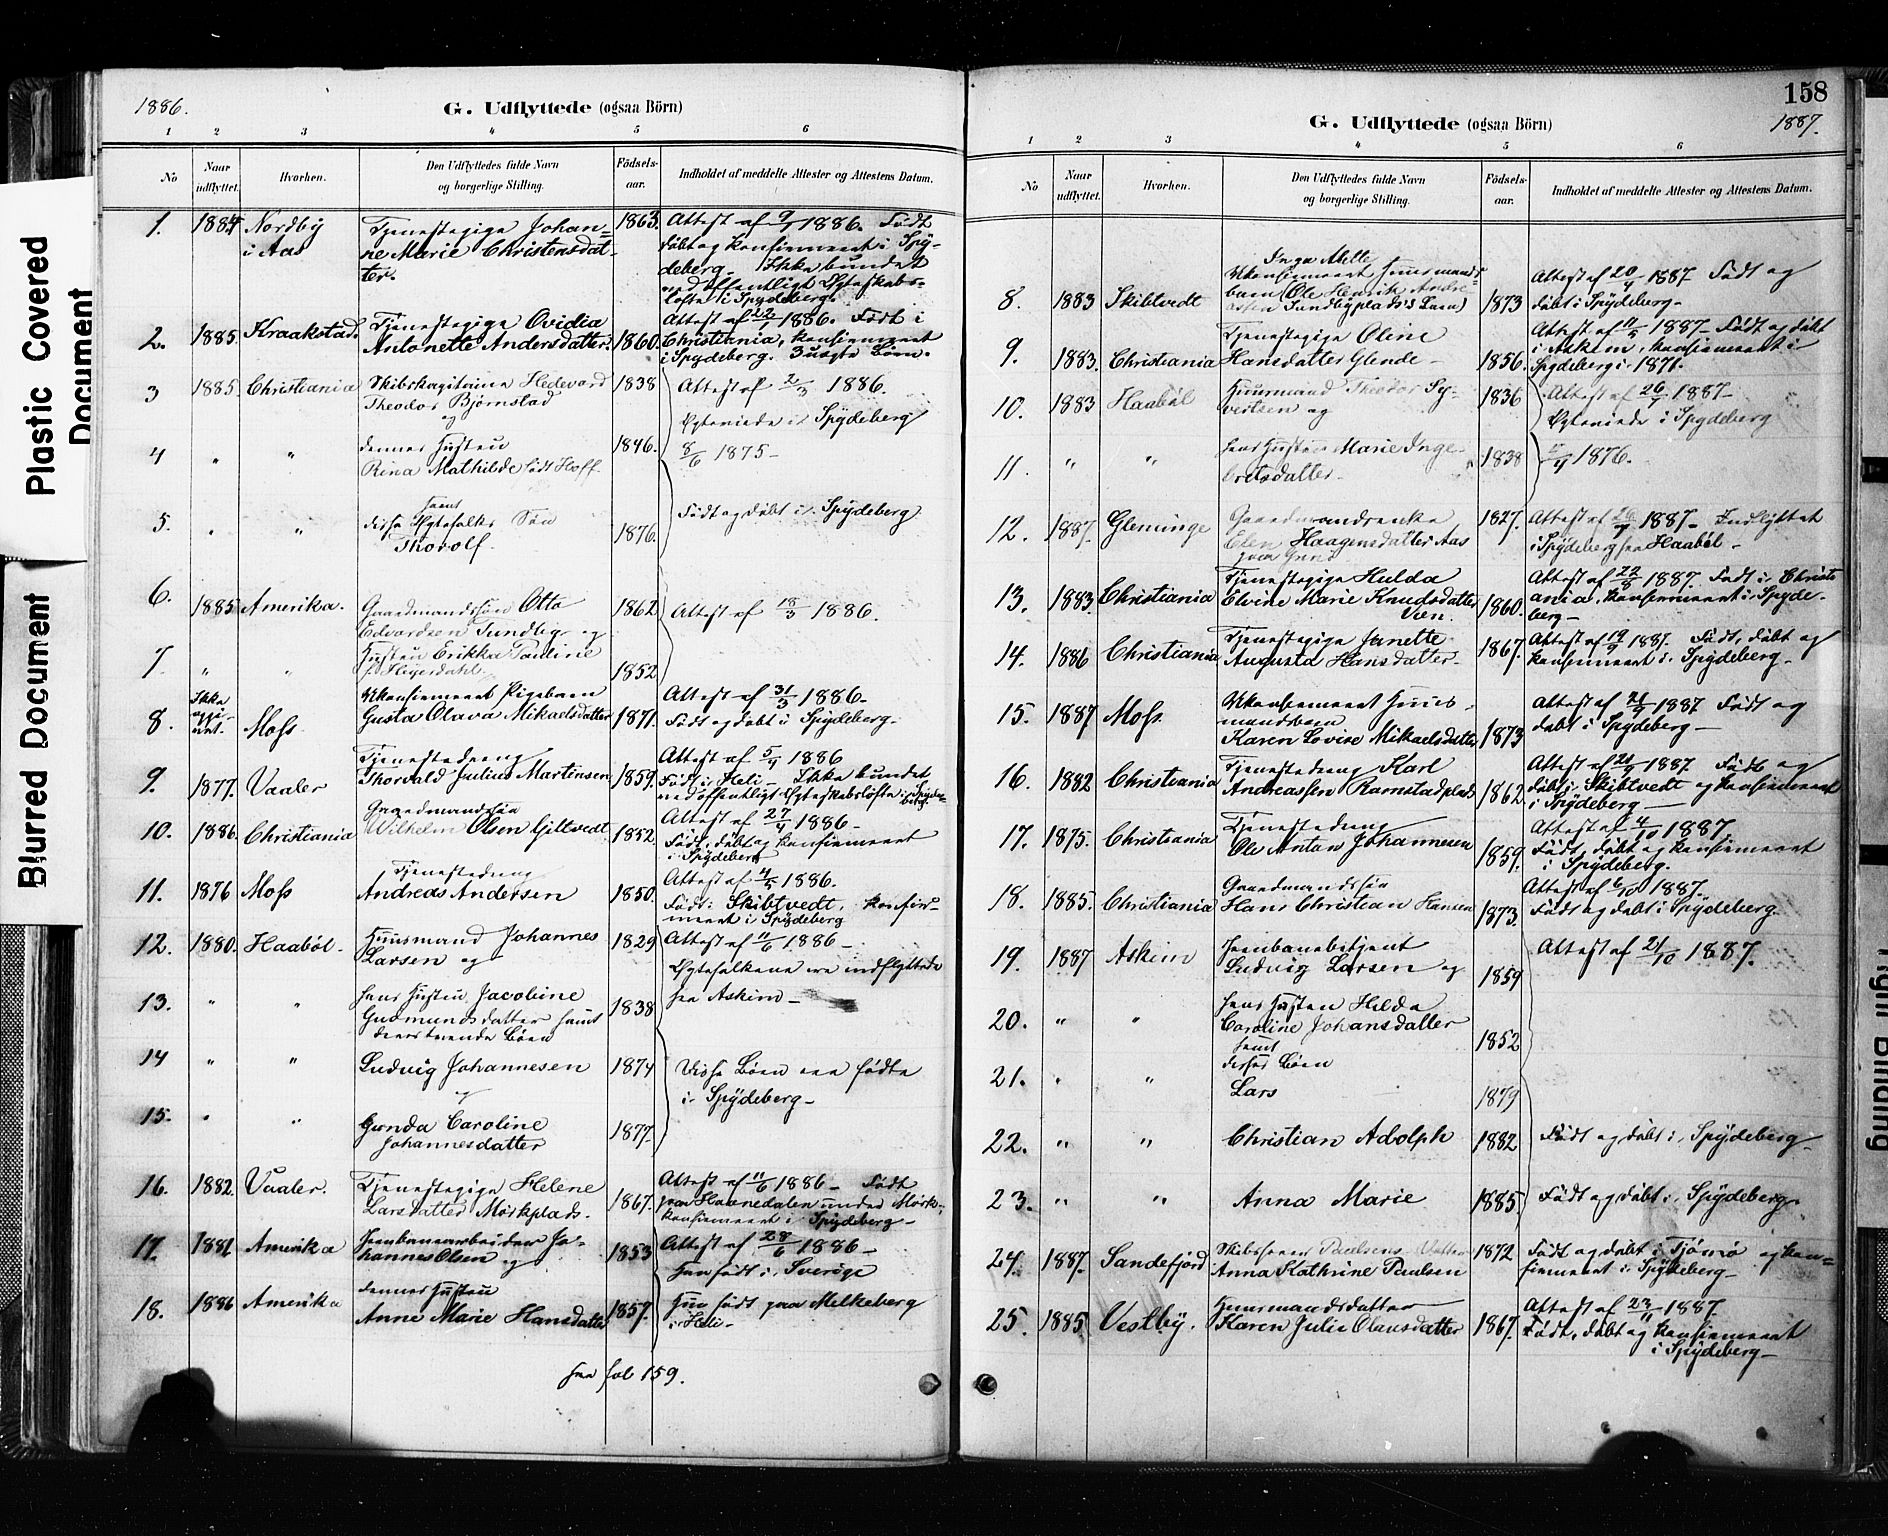 Plastic Covered
Document
Blurred Document
Tight Binding
1886.
G. Udflyttede (ogsaa Börn)
1 2 3 4 5 6
No
Naar udflyttet.
Hvorhen.
Den Udflyttedes fulde Navn og borgerlige Stilling.
Födsels-aar.
Indholdet af meddelte Attester og Attestens Datum.
1. 1884 Nordby i Aas Tjenestepige Johanne Marie Christensdatter. 1863 Attest af 9/1 1886. Født døbt og konfirmeret i Spydeberg. Ikke bundet ved offentligt Ægteskabsløfte i Spydeberg.
2. 1885. Kraakstad. Tjenestepige Ovidia Antonette Andersdatter. 1860. Attest af 22/1 1886. Født i Christiania, konfirmeret i Spydeberg. 3 uægte Børn.
3 1885. Christiania Skibskaptaine Hedevard Theodor Bjørnstad og 1838 Attest af 2/3 1886. Ægteviede i Spydeberg
4 " " dennes Hustru Rina Mathilde født Hoff. 1846. 8/6 1875-
5. " " samt disse Ægtefolks Søn Thorolf. 1876. Født og døbt i Spydeberg
6. 1885 Amerika. Gaardmandssøn Otto Edvardsen Tundlig og 1862 Attest af 18/3 1886.
7. " " Hustru Erikka Pauline f. Heyerdahl. 1852
8. Ikke opgivet. Moss Ukonfirmeret Pigebarn Gusta Olava Mikaelsdatter 1871. Attest af 31/3 1886- Født og døbt i Spydeberg-
9. 1877. Vaaler Tjenestedreng Thorvald Julius Martinsen 1859. Attest af 5/4 1886 Født i Heli- Ikke bundet ved offentligt Ægteskabsløfte i Spydeberg.
10. 1886. Christiania Gaardmandssøn Wilhelm Olsen Gjiltvedt 1852. Attest af 27/4 1886- Født, døbt og konfirmeret i Spydeberg
11. 1876 Moss Tjenestedreng Andreas Andersen 1850. Attest af 4/5 1886. Født i Skibtvedt, konfirmeret i Spydeberg
12. 1880. Haabøl- Huusmand Johannes Larsen og 1829 Attest af 11/6 1886- Ægtefolkene ere indflyttede
13. " " hans Hustru Jacobine Gudmundsdatter samt deres tvende Børn 1838 fra Askim-
14 " " Ludvig Johannesen og 1874 Disse Børn ere fødte i Spydeberg-
15. " " Gunda Caroline Johannesdatter 1877.
16. 1882. Vaaler. Tjenestepige Helene Larsdatter Mørkplads. 1867. Attest af 11/6 1886- Født paa Haanedalen under Mørk, konfirmeret i Spydeberg-
17. 1881 Amerika Jernbanearbeider Johannes Olsen og 1853 Attest af 28/6 1886- Han født i Sverige
18. 1886 Amerika dennes Hustru Anne Marie Hansdatter 1857. Hun født paa Melkeberg i Heli-
see fol 159.
158
1887.
G. Udflyttede (ogsaa Börn)
1 2 3 4 5 6
No
Naar udflyttet.
Hvorhen.
Den Udflyttedes fulde Navn og borgerlige Stilling.
Födsels-aar.
Indholdet af meddelte Attester og Attestens Datum.
8. 1883 Skibtvedt Inga Mille Ukonfirmeret Huusmandsbarn (Ole Henrik Andreasen Sundbyplads's Barn) 1873 Attest af 20/4 1887 Født og døbt i Spydeberg-
9. 1883. Christiania Tjenestepige Oline Hansdatter Glende- 1856. Attest af 11/5 1887- Født og døbt i Askim, konfirmeret i Spydeberg i 1871.
10. 1883 Haabøl Huusmand Theodor Syvertsen og 1836 Attest af 26/7 1887- Ægteviede i Spydeberg
11. " " hans Hustru Marie Ingebretsdatter- 1838 1876.
12. 1887. Gleminge Gaardmandsenke Elen Haagensdatter Aas 1827. Attest af 1887- Indflyttet i Spydeberg fra Haabøl-
13. 1883 Christiania Tjenestepige Hulda Elvine Marie Knudsdatter Veen. 1860. Attest af 22/8 1887. Født i Christiania, konfirmeret i Spydeberg-
14. 1886 Christiania Tjenestepige Janette Augusta Hansdatter- 1867. Attest af 19/9 1887. Født, døbt og konfirmeret i Spydeberg-
15. 1887 Moss. Ukonfirmeret Huusmandsbarn Karen Lovise Mikaelsdatter 1873 Attest af 21/9 1887 Født og døbt i Spydeberg-
16. 1882 Christiania Tjenestedreng Karl Andreassen Ramstadplads 1862 Attest af 21/9 1887 Født og døbt i Skibtvedt og konfirmeret i Spydeberg-
17. 1875. Christiania Tjenestedreng Ole Anton Johannesen 1859. Attest af 4/10 1887 Født, døbt og konfirmeret i Spydeberg.
18. 1885. Christiania Gaardmandssøn Hans Christian Hansen 1873. Attest af 6/10 1887. Født og døbt i Spydeberg.
19. 1887 Askim Jernbanebetjent Ludvig Larsen og 1859 Attest af 21/10 1887.
20. " " hans Hustru Hilda Caroline Johansdatter samt 1852
21. " " disses Børn Lars 1879
22. " " Christian Adolph 1882 Født og døbt i Spydeberg-
23. " " Anna Marie 1885 Født og døbt i Spydeberg.
24. 1887. Sandefjord Skibsfører Paulsens Datter Anna Kathrine Paulsen 1872 Født og døbt i Tjømø og konfirmeret i Spydeberg-
25. 1885 Vestby. Huusmandsdatter Karen Julie Olausdatter 1867. Attest af 23/11 1887. Født, døbt og konfirmeret i Spydeberg-